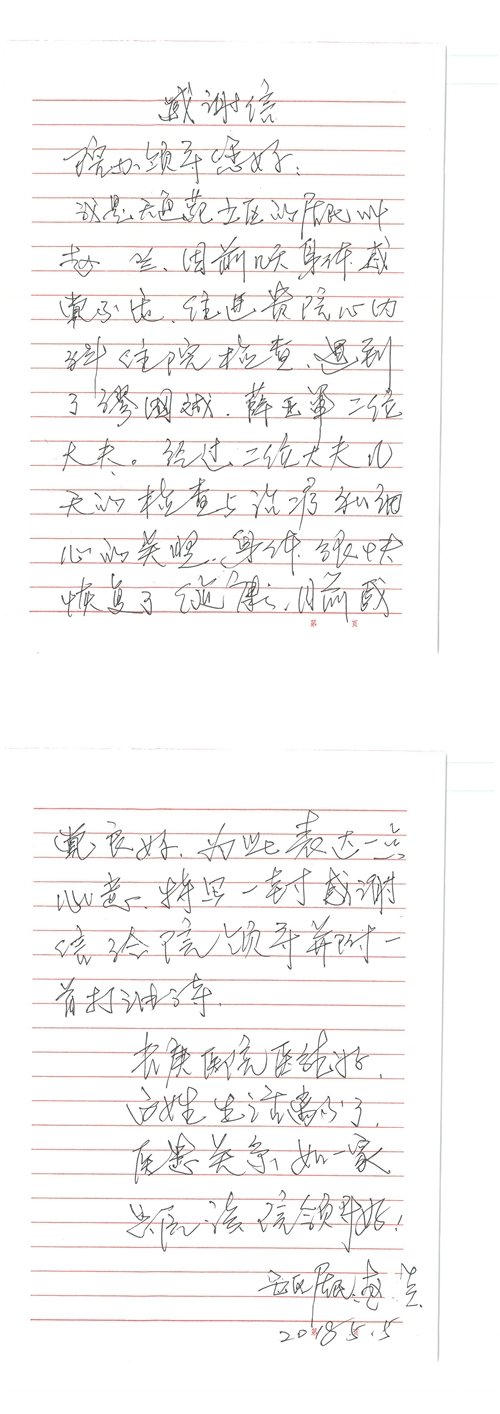 感谢信
院办领导您好：
我是天通苑社区的居民叫
赵 兰，因前几天身体感
觉不适，住进贵院心内
科住院检查，遇到
了缪国斌、薛亚军二位
大夫。经过二位大夫几
天的检查与治疗和细
心的关照，身体很快
恢复了健康，目前感
第 页
觉良好，为此表达一点
心意，特写一封感谢
信给院领导并附一
首打油诗.
长庚医院医德好，
百姓生活离不了，
医患关系如一家
院领导好！
社区居民：赵 兰
2018.5.5
第